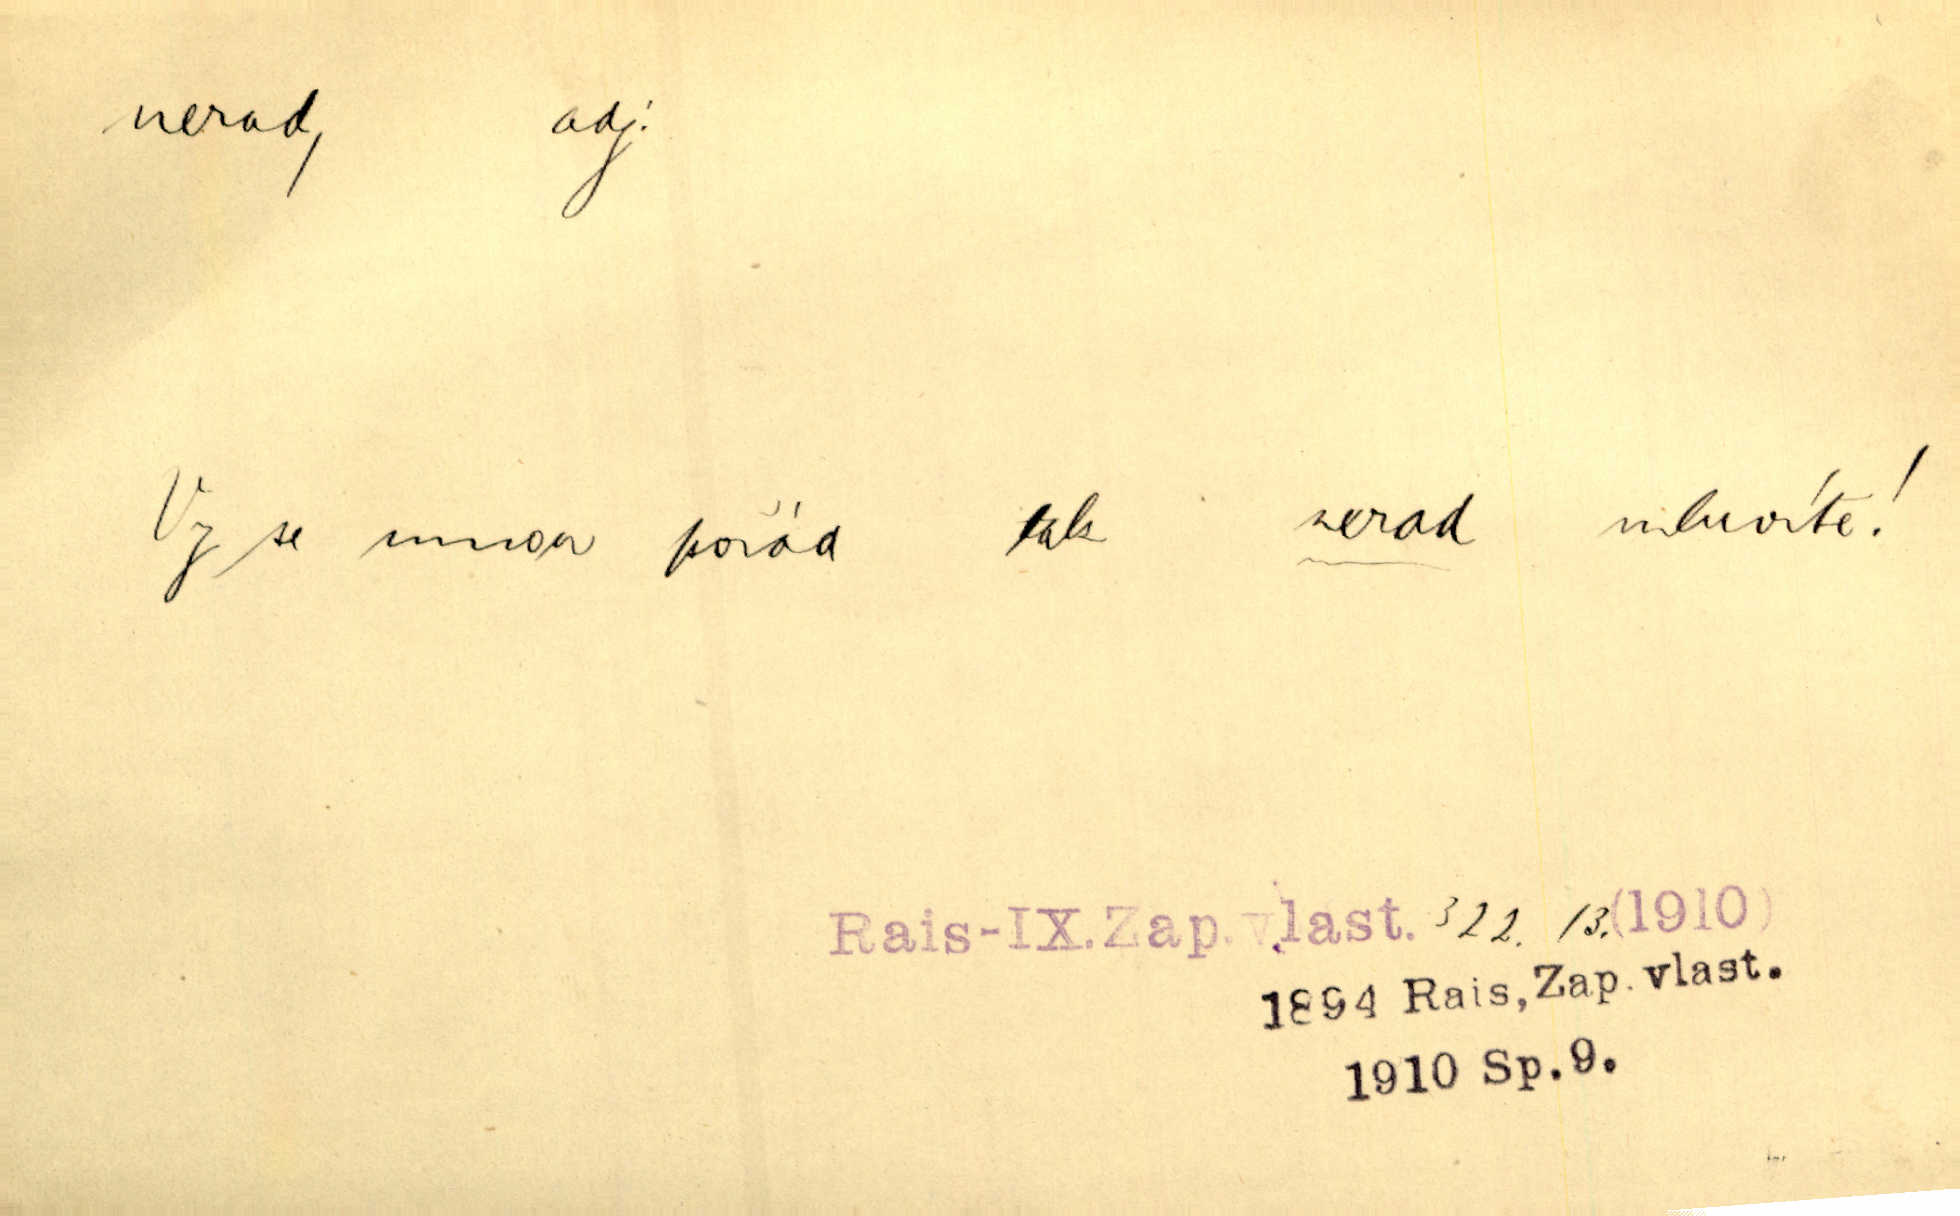 nerad, adj.
Vy se mnou pořád tak nerad mluvíte!
Rais-IX.Zap.vlast. 322. 13.(1910)
1894 Rais, Zap. vlast.
1910 Sp.9.